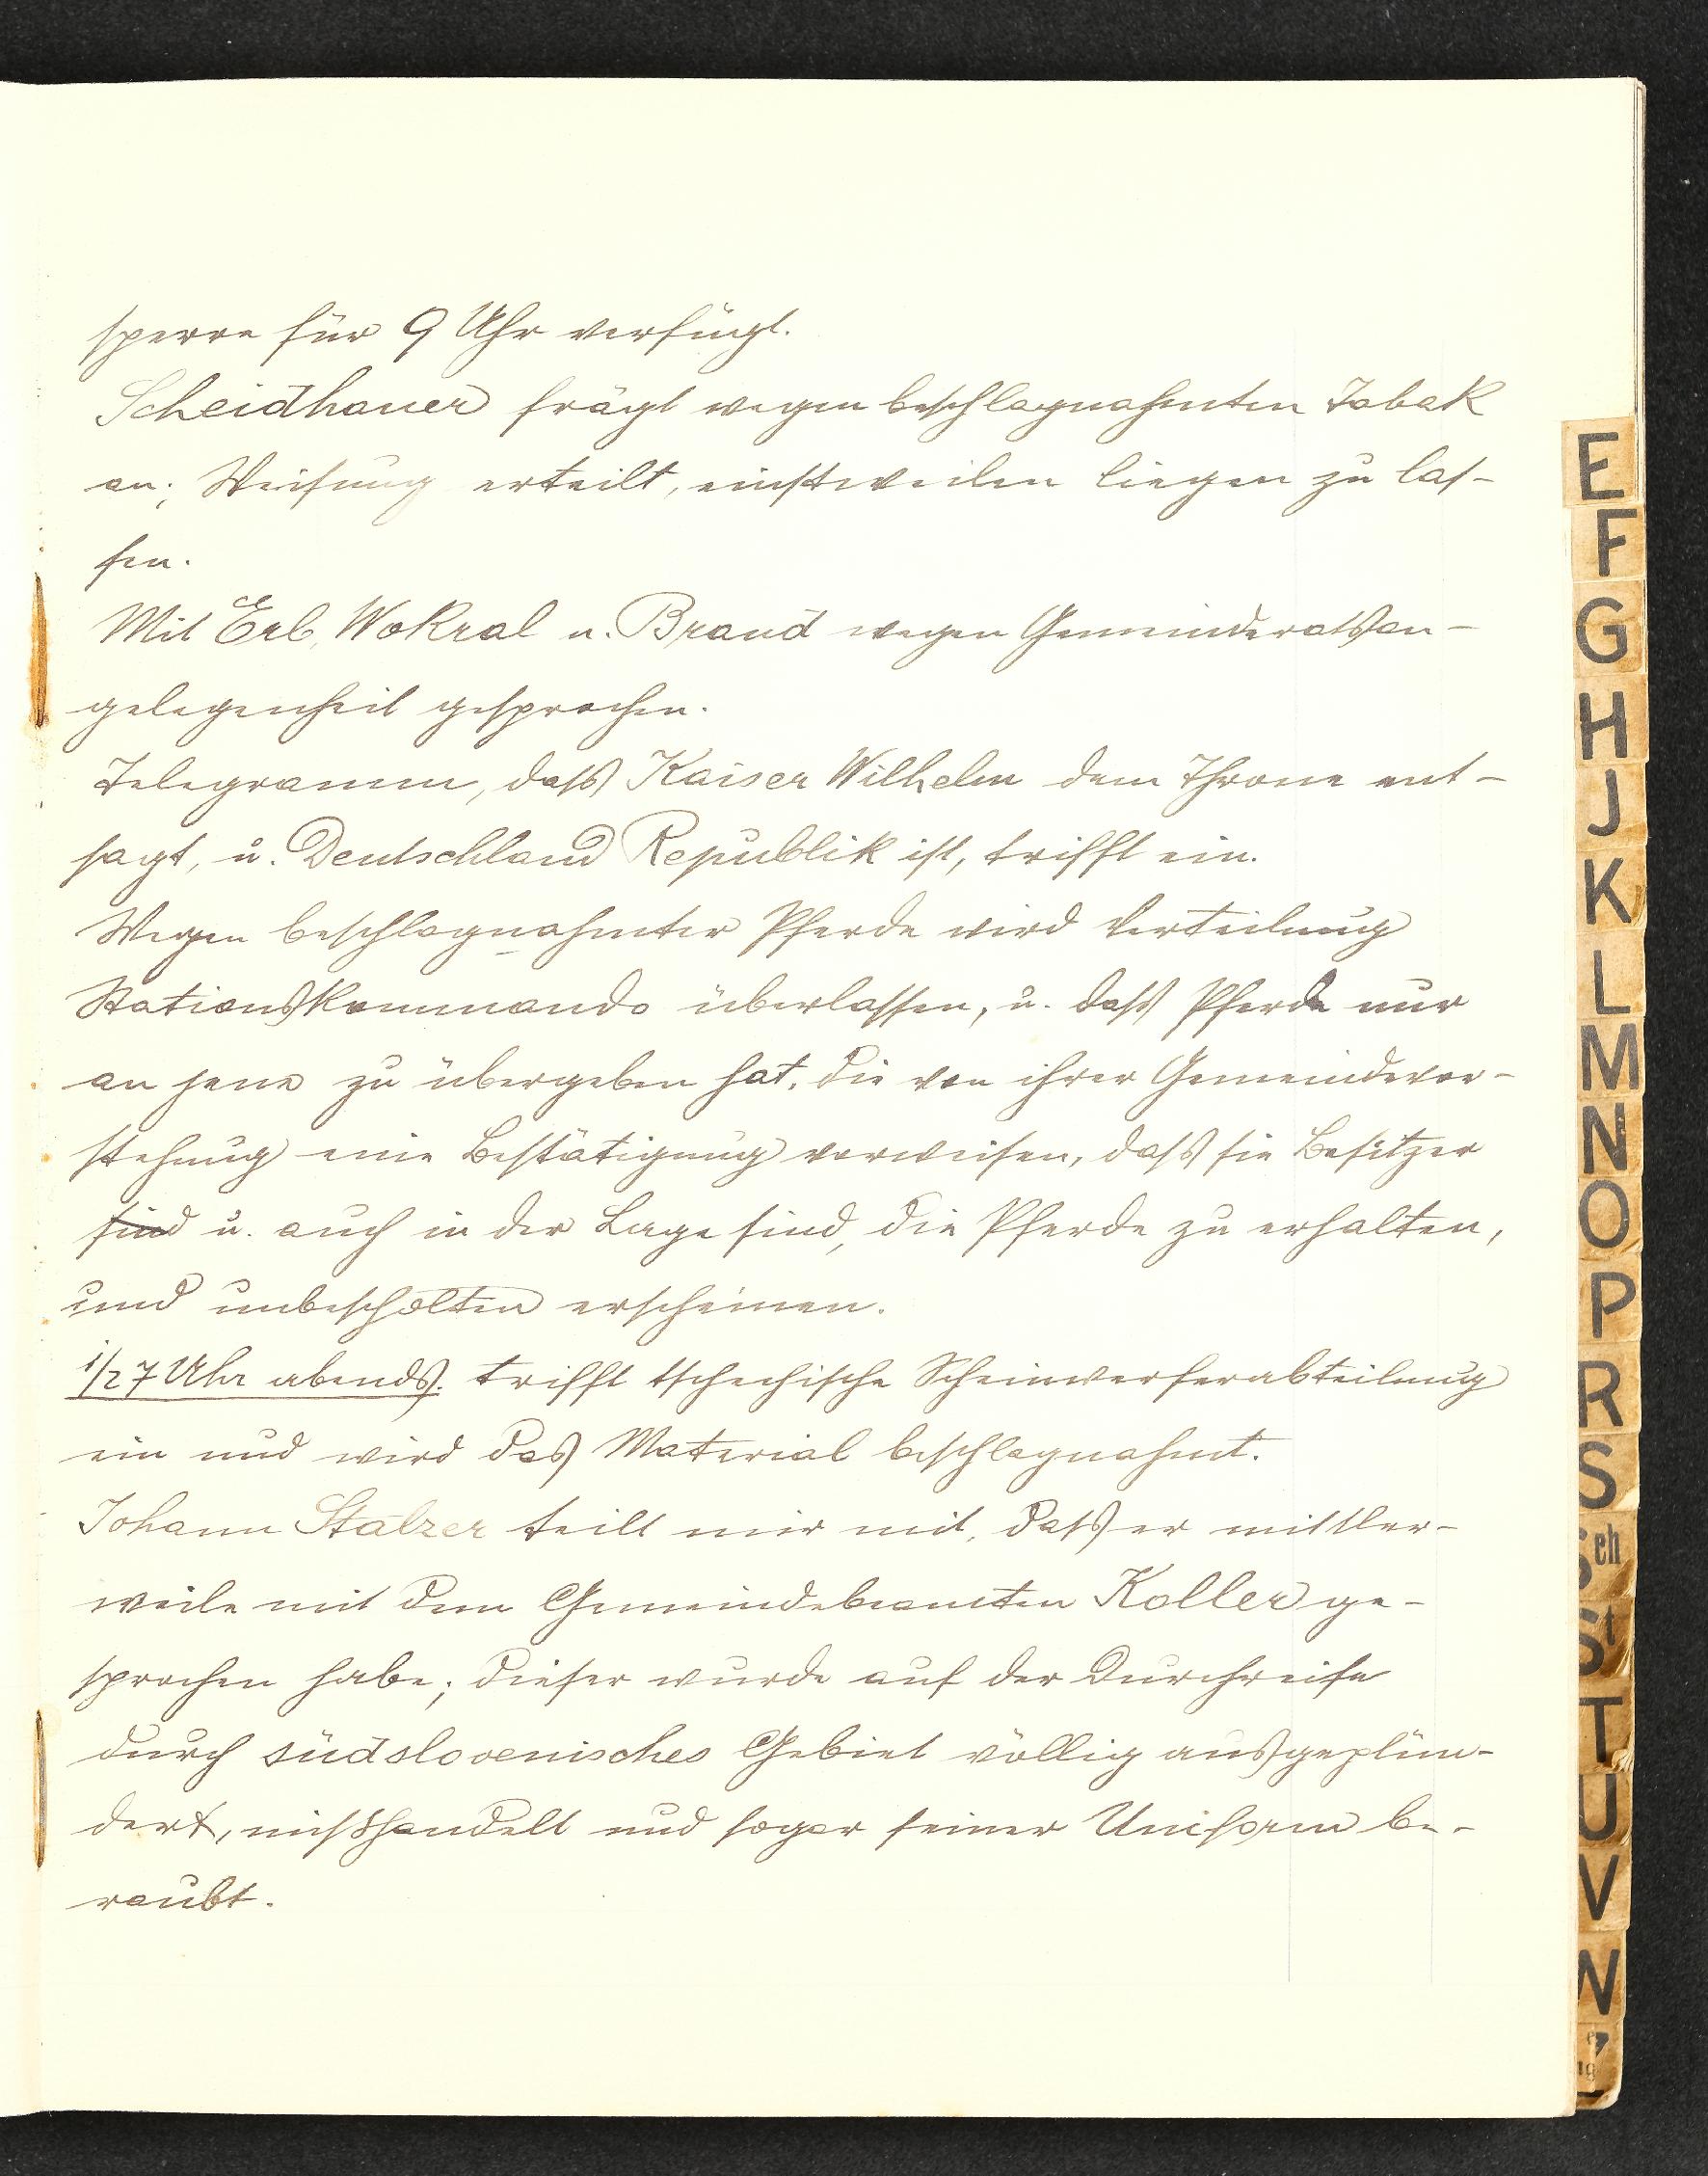 sperre für 9 Uhr verfügt.
Scheidhauer frägt wegen beschlagnahmten Tabak
an; Weisung erteilt, einstweilen liegen zu las-
sen.
Mit Erb, Wokral u. Brand wegen Gemeinderatsan-
gelegenheit gesprochen.
Telegramm, dass Kaiser Wilhelm dem Throne ent-
sagt, u. Deutschland Republik ist, trifft ein.
Wegen beschlagnahmter Pferde wird Verteilung
Stationskommando überlassen, u. dass Pferde nur
an jene zu übergeben hat, die von ihrer Gemeindevor-
stehung eine Bestätigung vorweisen, dass sie Besitzer
sind u. auch in der Lage sind, die Pferde zu erhalten,
und unbescholten erscheinen.
1/27 Uhr abends. trifft tschechische Scheinwerferabteilung
ein und wird das Material beschlagnahmt.
Johann Stalzer teilt mir mit, dass er mittler-
weile mit dem Gemeindebeamten Koller ge-
sprochen habe; dieser wurde auf der Durchreise
durch südslovenisches Gebiet völlig ausgeplün-
dert, misshandelt und sogar seiner Uniform be-
raubt.
E
F
G
H
J
K
L
M
N
O
P
R
S
Sch
St
T
U
V
W